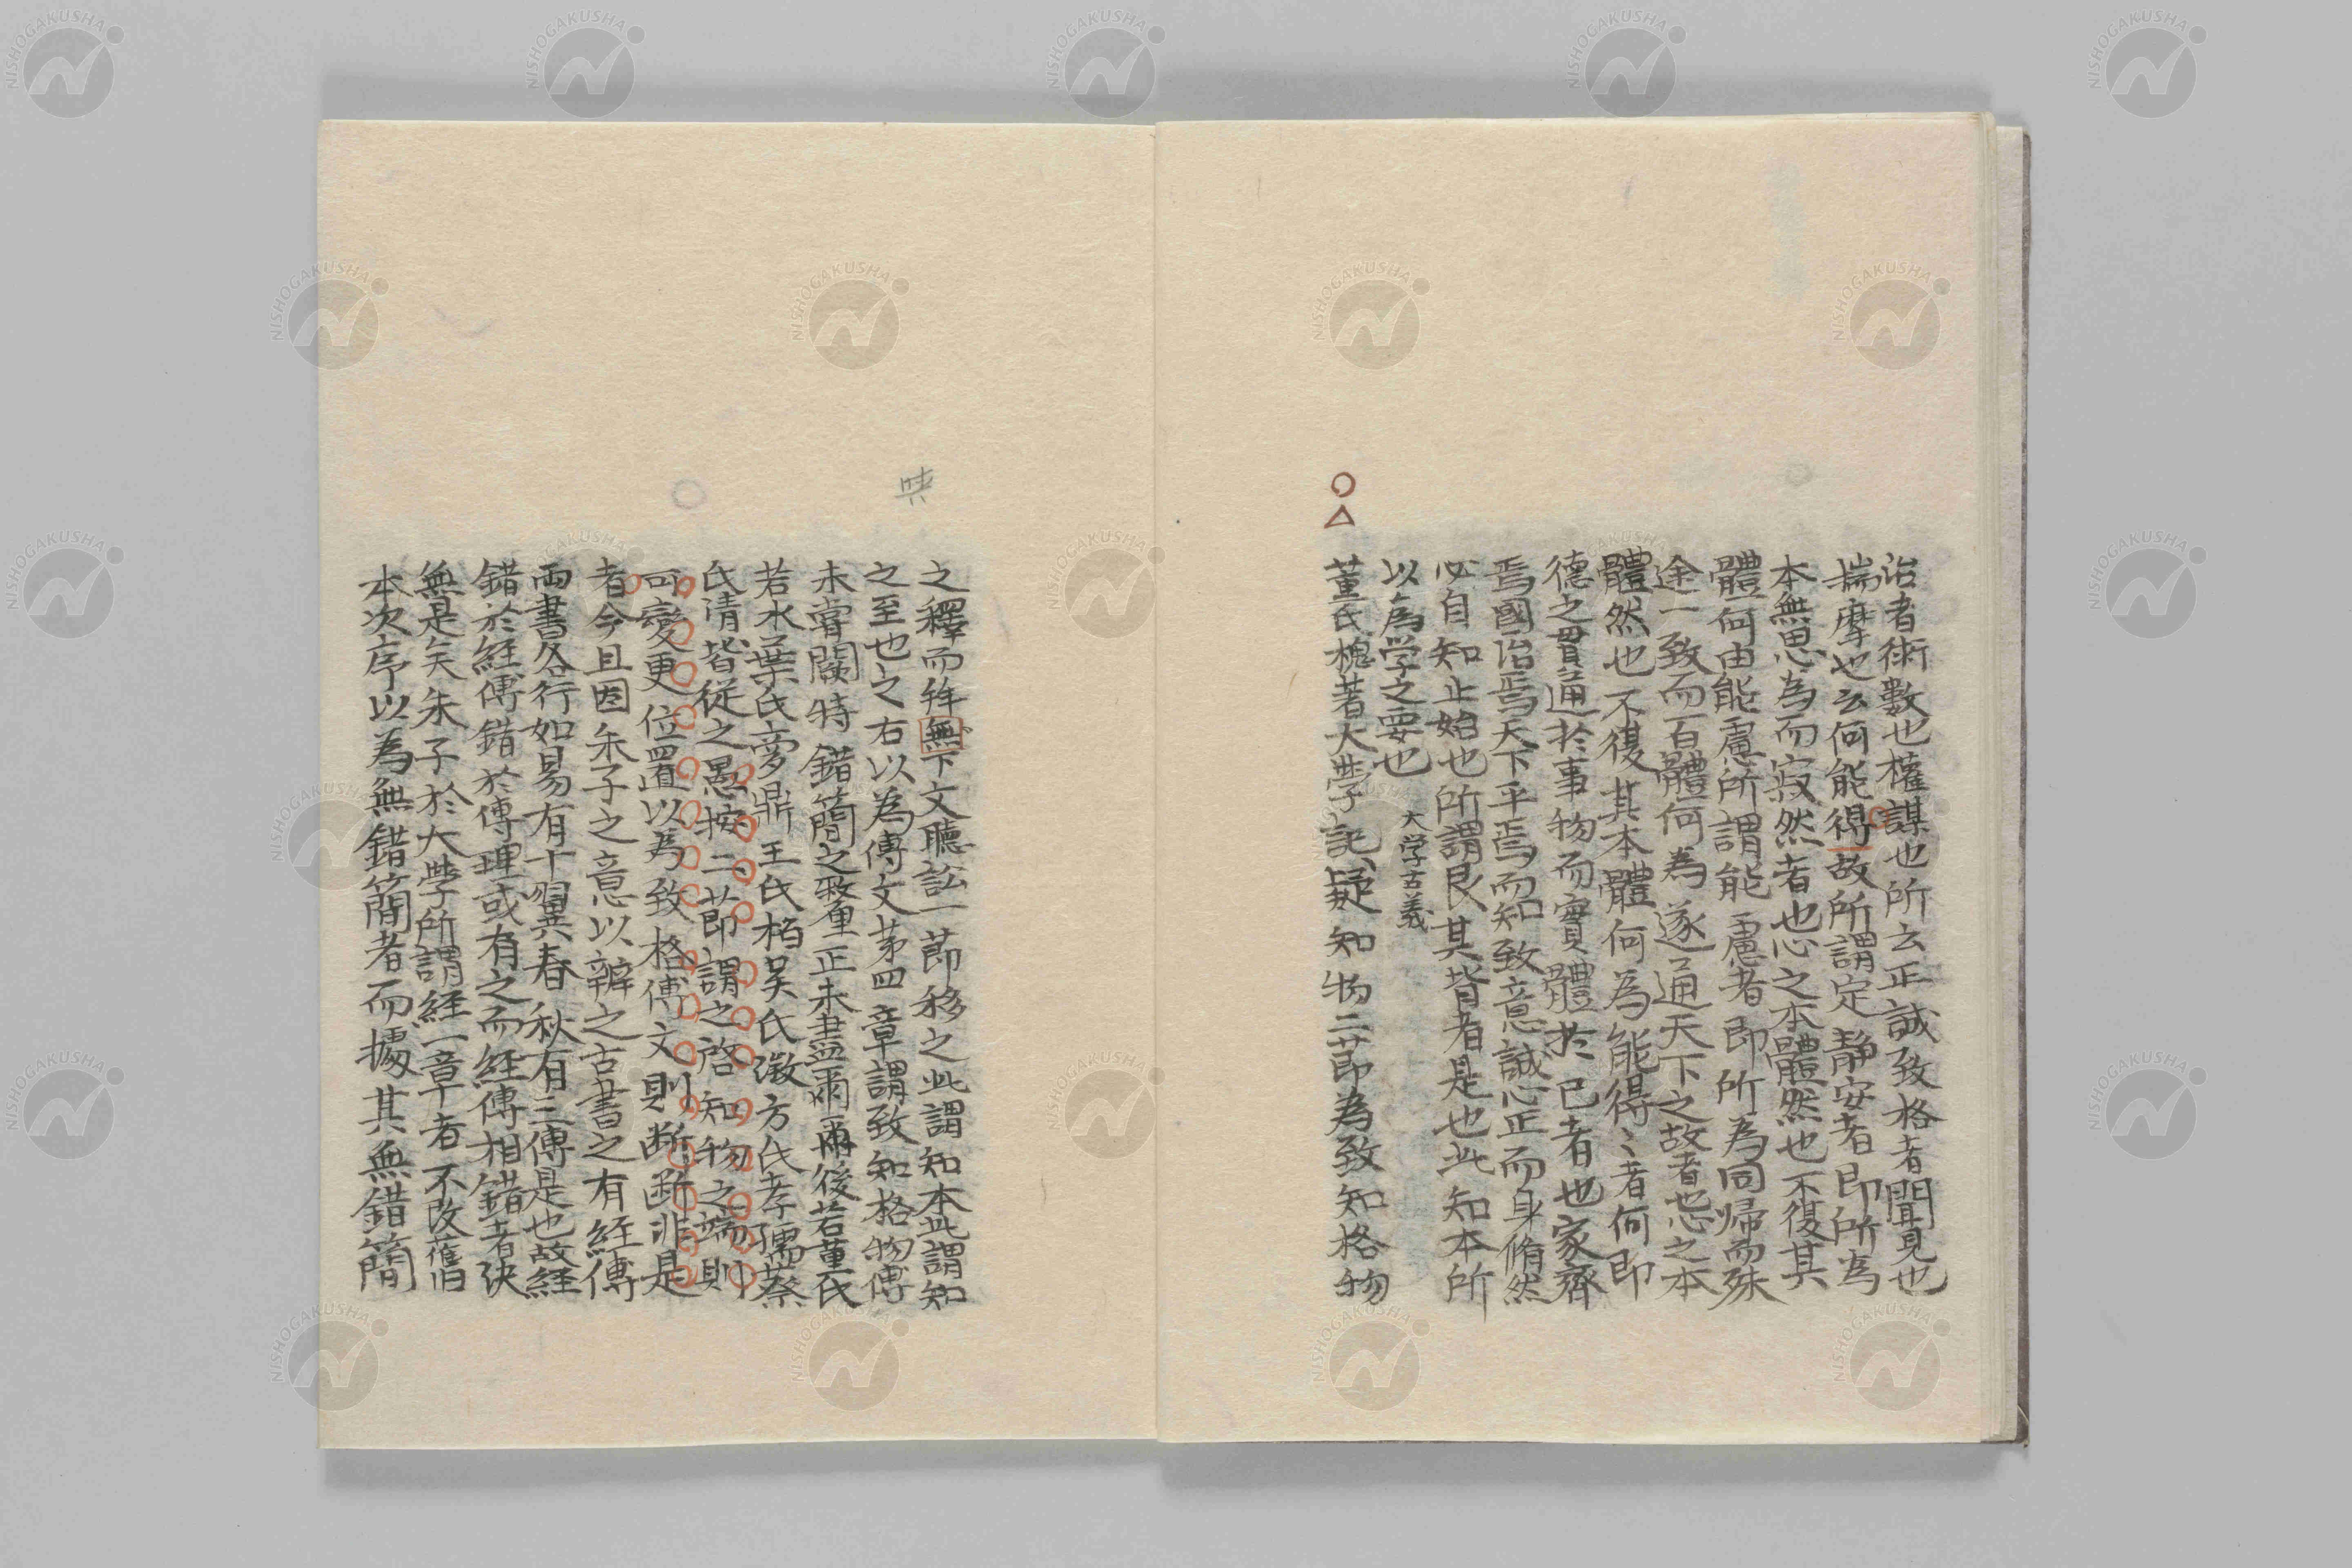 治者術數也權謀也所云正誠致格者聞見也
揣摩也云何能得故所謂定靜安者即所為
本無思為而寂然者也心之本體然也不復其
體何由能慮所謂能慮者即所為同帰而殊
途一致而百體何為遂通天下之故者也心之本
體然也不復其本體何為能得〻者何即
德之貫通於事物而實體於己者也家齊
焉國治焉天下平焉而知致意誠心正而身脩然
必自知止始也所謂艮其背者是也此知本所
以為学之要也 大学古義
○△
董氏槐著大學記疑知物二莭為致知格物
之釋而無下文聽訟一莭移之此謂知本此謂知
之至也之右以為傳文苐四章謂致知格物傳
未甞闕特錯簡之釐正未盡爾爾後若董氏
若水葉氏夢鼎王氏栢吴氏澂方氏孝孺蔡
氏清皆從之愚按二莭謂之啓知物之端則
可變更位置以為致格傳文則断断非是
者今且因朱子之意以辧之古書之有経傳
両書各行如易有十翼春秋有三傳是也故経
錯於経傳錯於傳理或有之而経傳相錯者决
無是矣朱子於大學所謂経一章者不改舊
本次序以為無錯簡者而據其無錯簡
NISHOGAKUSHA